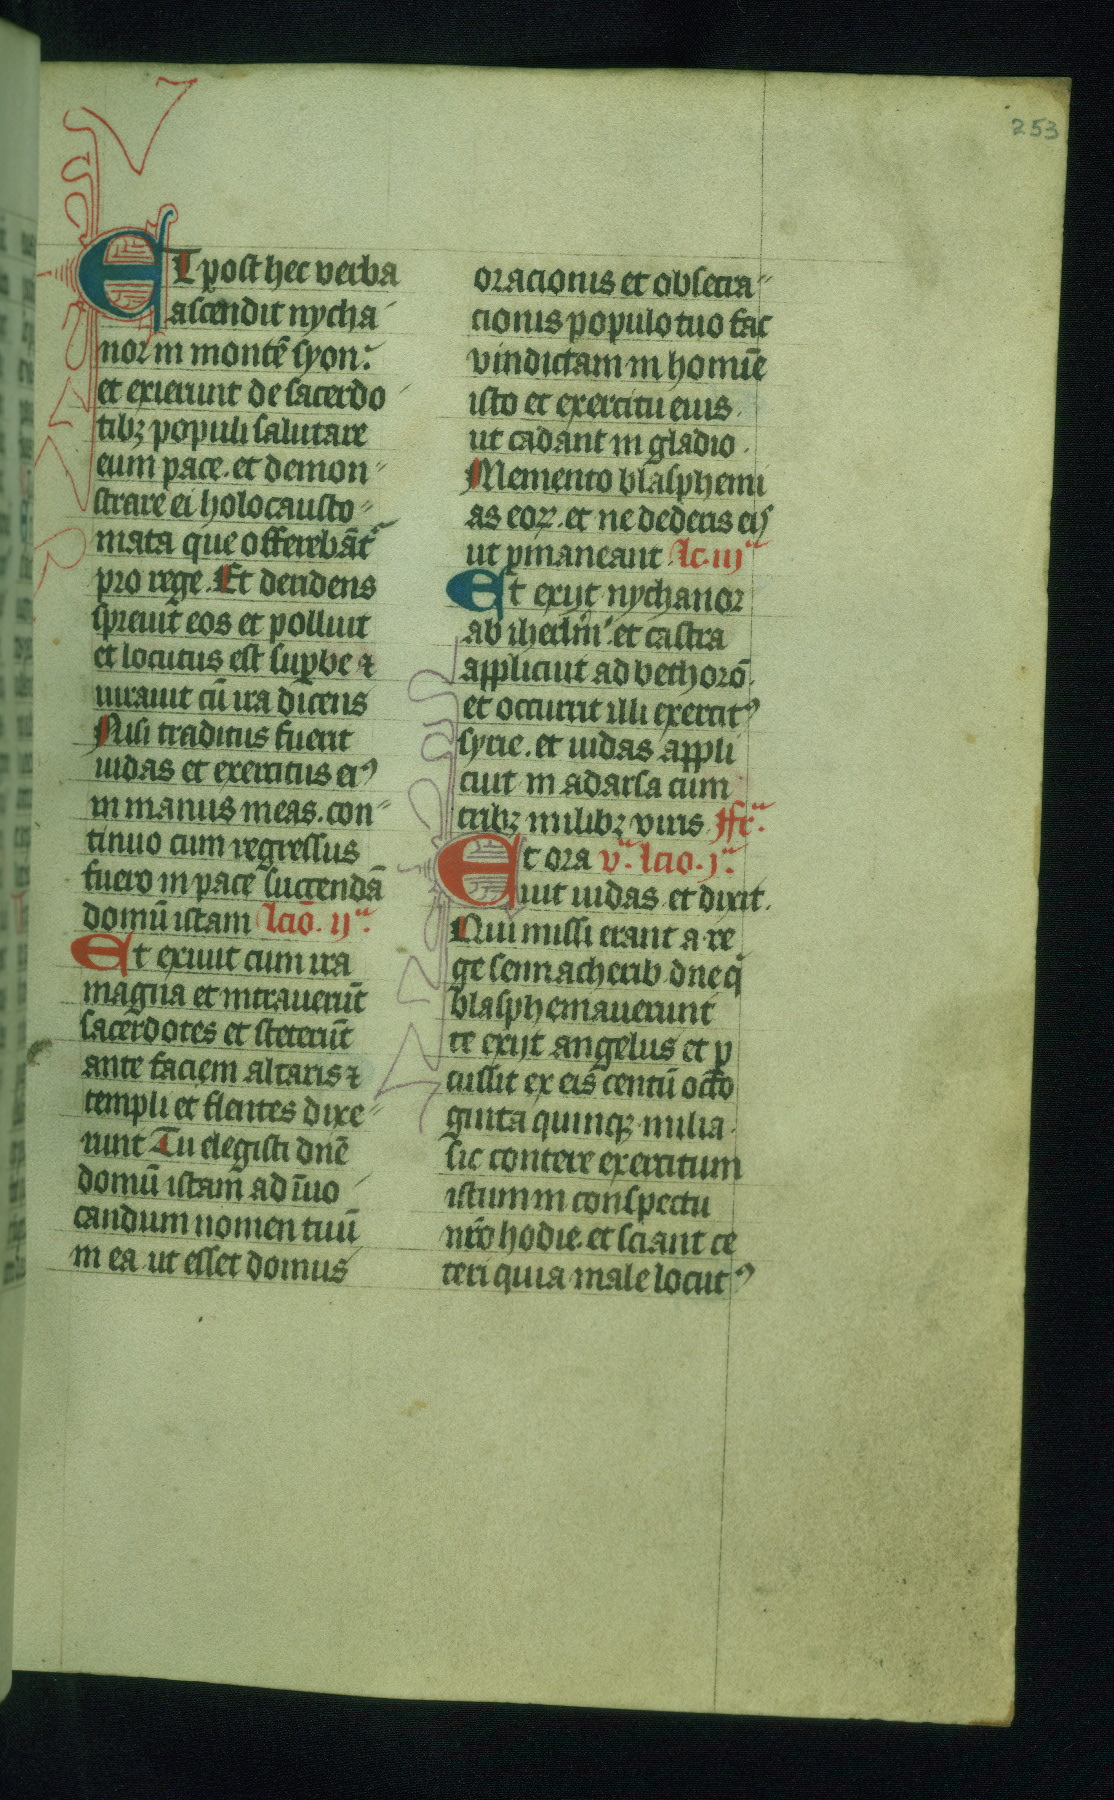 253
ET post hec verba
ascendit nycha
nor in montē syon:
et exierunt de sacerdo
tibꝫ populi salutare
eum pace. et demon
strare ei holocausto
mata que offerebāt
pro rege. Et deridens
spreuit eos et polluit
et locutus est suꝑbe ⁊
iurauit cū ira dicens
Nisi traditus fuerit
iudas et exercitus eiꝰ
in manus meas. con
tinuo cum regressus
fuero in pace succendā
domū istam lcīo. ijᵃ.
Et exiuit cum ira
magna et intrauerūt
sacerdotes et steterūt
ante faciem altaris ⁊
templi et flentes dixe
runt Tu elegisti dnē
domū istam ad īuo
candum nomen tuū
in ea ut esset domus
oracionis et obsecra
cionis populo tuo fac
vindictam in homīe
isto et exercitu eius.
ut cadant in gladio.
Memento blasphemi
as eoꝝ. et ne dederis eis
ut ꝑmaneant lc. iijᵃ
Et exijt nychanor
ab iherl̄m. et castra
applicuit ad bethorō.
et occurrit illi exercitꝰ
syrie. et iudas appli
cuit in adarsa cum
tribꝫ milibꝫ viris. ffrᵃ.
Et ora vᵃ. lcio. jᵃ.
uit iudas et dixit.
Qui missi erant a re
ge sennacherib dne qͥ
blasphemauerunt
te exijt angelus et ꝑ
cussit ex eis centū octo
ginta quinqꝫ milia.
sic contere exercitum
istum in conspectu
nr̄o hodie. et sciant ce
teri quia male locutꝰ